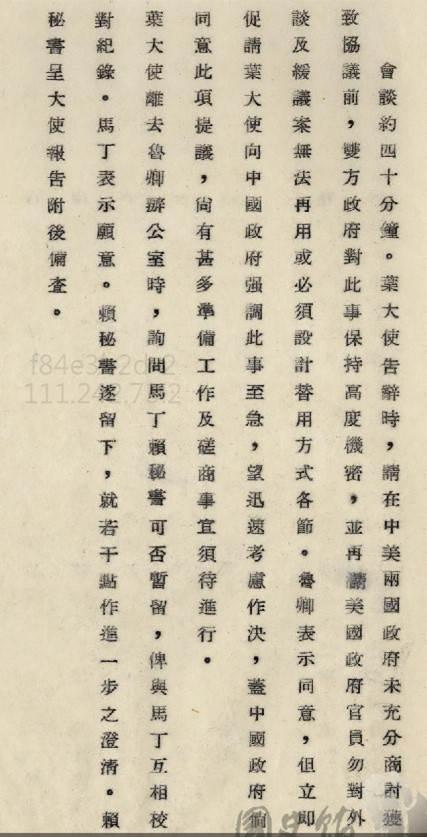 會談約四十分鐘。葉大使告辭時，請在中美兩國政府未充分商討獲
致協議前，雙方政府對此事保持高度機密，並再請美國政府官員勿對外
談及緩議案無法再用或必須設計替用方式各節。魯卿表示同意，但立即
促請葉大使向中國政府强調此事至急，望迅速考慮作決，蓋中國政府倘
同意此項提議，尙有甚多準備工作及磋商事宜須待進行。
葉大使離去魯卿辦公室時，詢問馬丁賴秘書可否暫留，俾與馬丁互相校
對紀錄。馬丁表示願意。賴秘書遂留下，就若干點作進一步之澄清。賴
秘書呈大使報告附後備查。